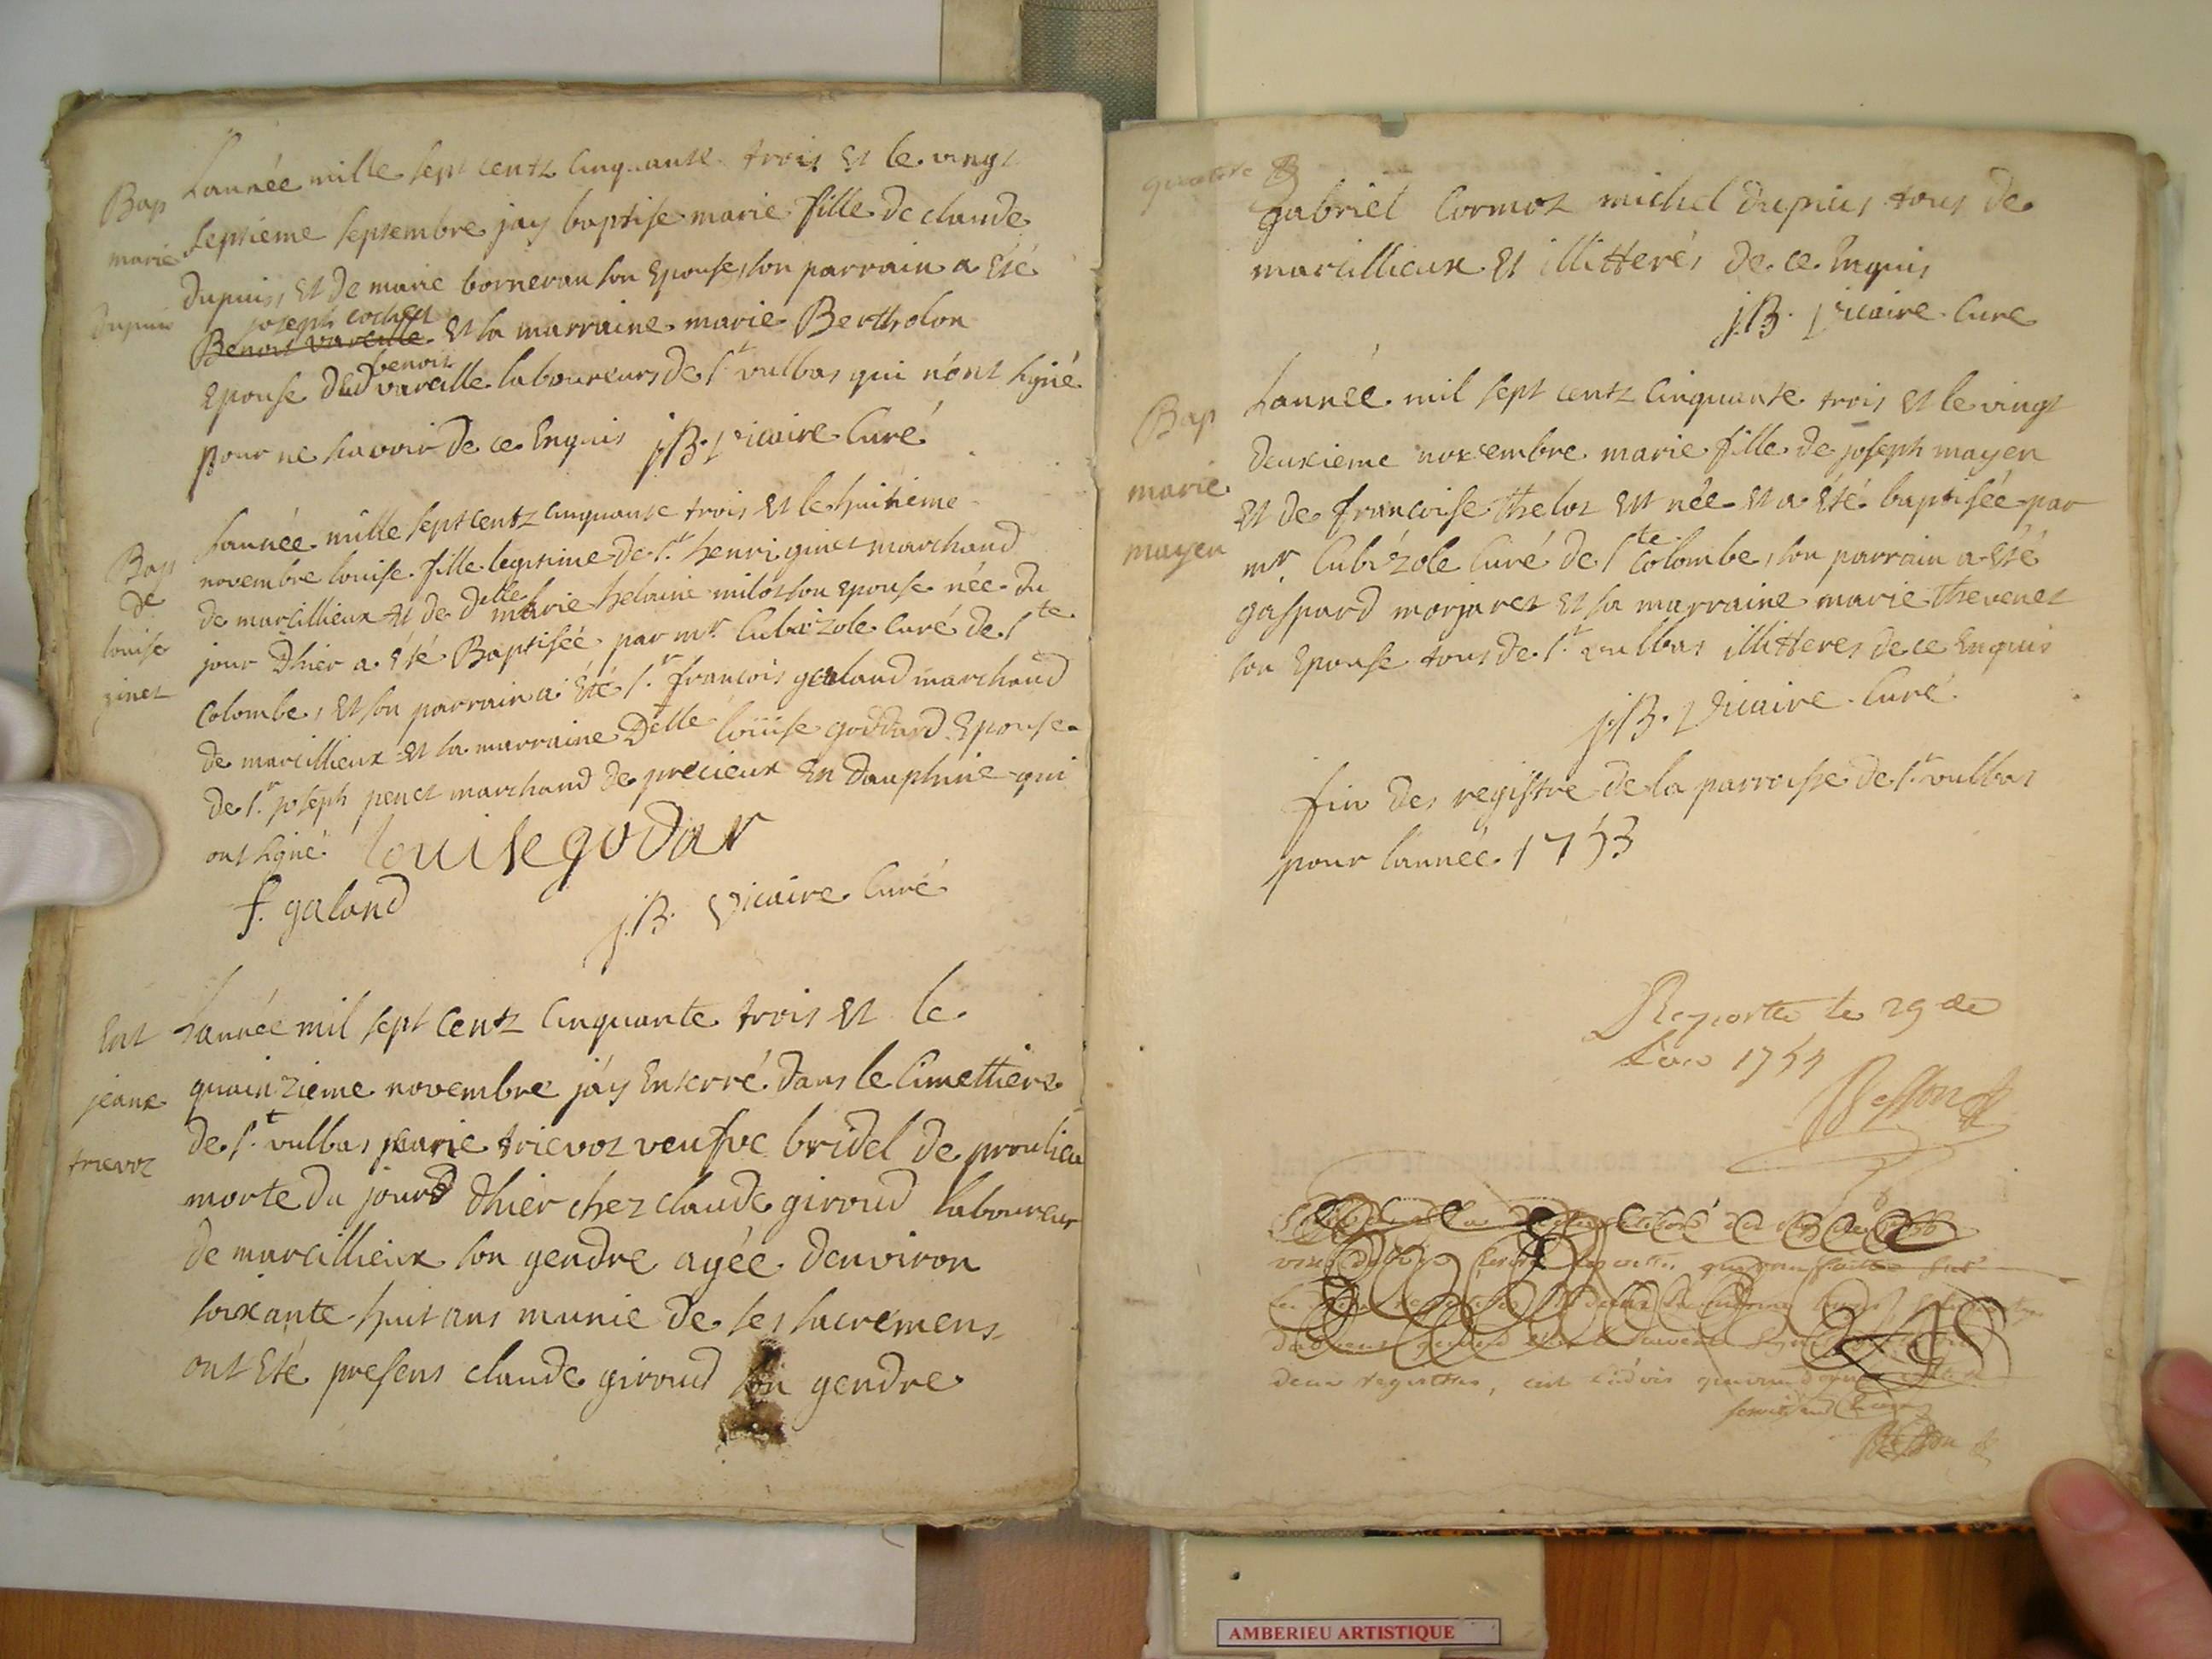 Bap
marie
dupuis
Lannée mille sept centz cinquante trois et le vingt
septieme septembre jay baptise marie fille de claude
dupuis et de marie borneran son epouse, son parrain a été
joseph cochet
Benoit vareille et la marraine marie Bertholon
benoit
epouse dud vareille laboureurs de st vulbas qui n'ont signé
pour ne savoir de ce enquis j.B. vicaire curé
Bap
de
louise
ginet
Lannée mille sept centz cinquante trois et le huitieme
novembre louise fille legitime de sr henri ginet marchand
de marcillieux et de delle marie helaine milot son epouse née du
jour dhier a été Baptisée par mr. Cubizole curé de ste
colombe, et son parrain a été sr francois galand marchand
de marcillieux et la marraine Delle louise goddard epouse
de sr joseph penet marchand de precieux en dauphine qui
ont signé louise godar
f. galand
j.B. vicaire curé
Ent
jeane
trievoz
Lannée mil sept centz cinquante trois et le
quainzieme novembre jáy enterré dans le cimettiere
de st vulbas jeane trievoz veufve bridel de proulieu
morte du jourd dhier chez claude giroud laboureur
de marcillieux son gendre agée denviron
soixante huit ans munie de ses sacremens
ont été presens claude giroud son gendre
quatre
gabriel cormoz michel dupuis tous de
marcillieux et illitterés de ce enquis
j.B. vicaire curé
Bap
marie
mayen
Lannée mil sept centz cinquante trois et le vingt
deuxieme novembre marie fille de joseph mayen
et de francoise thelot est née et a été baptisée par
mr. Cubizole curé de ste colombe, son parrain a été
gaspard morjaret et sa marraine marie thevenet
son epouse tous de st vulbas illitteres de ce enquis
j.B. vicaire curé
fin des registre de la parroisse de st vulbas
pour lannée 1753
Reporté le 29 de
1754
Besson
deux registres,
Besson
AMBERIEU ARTISTIQUE